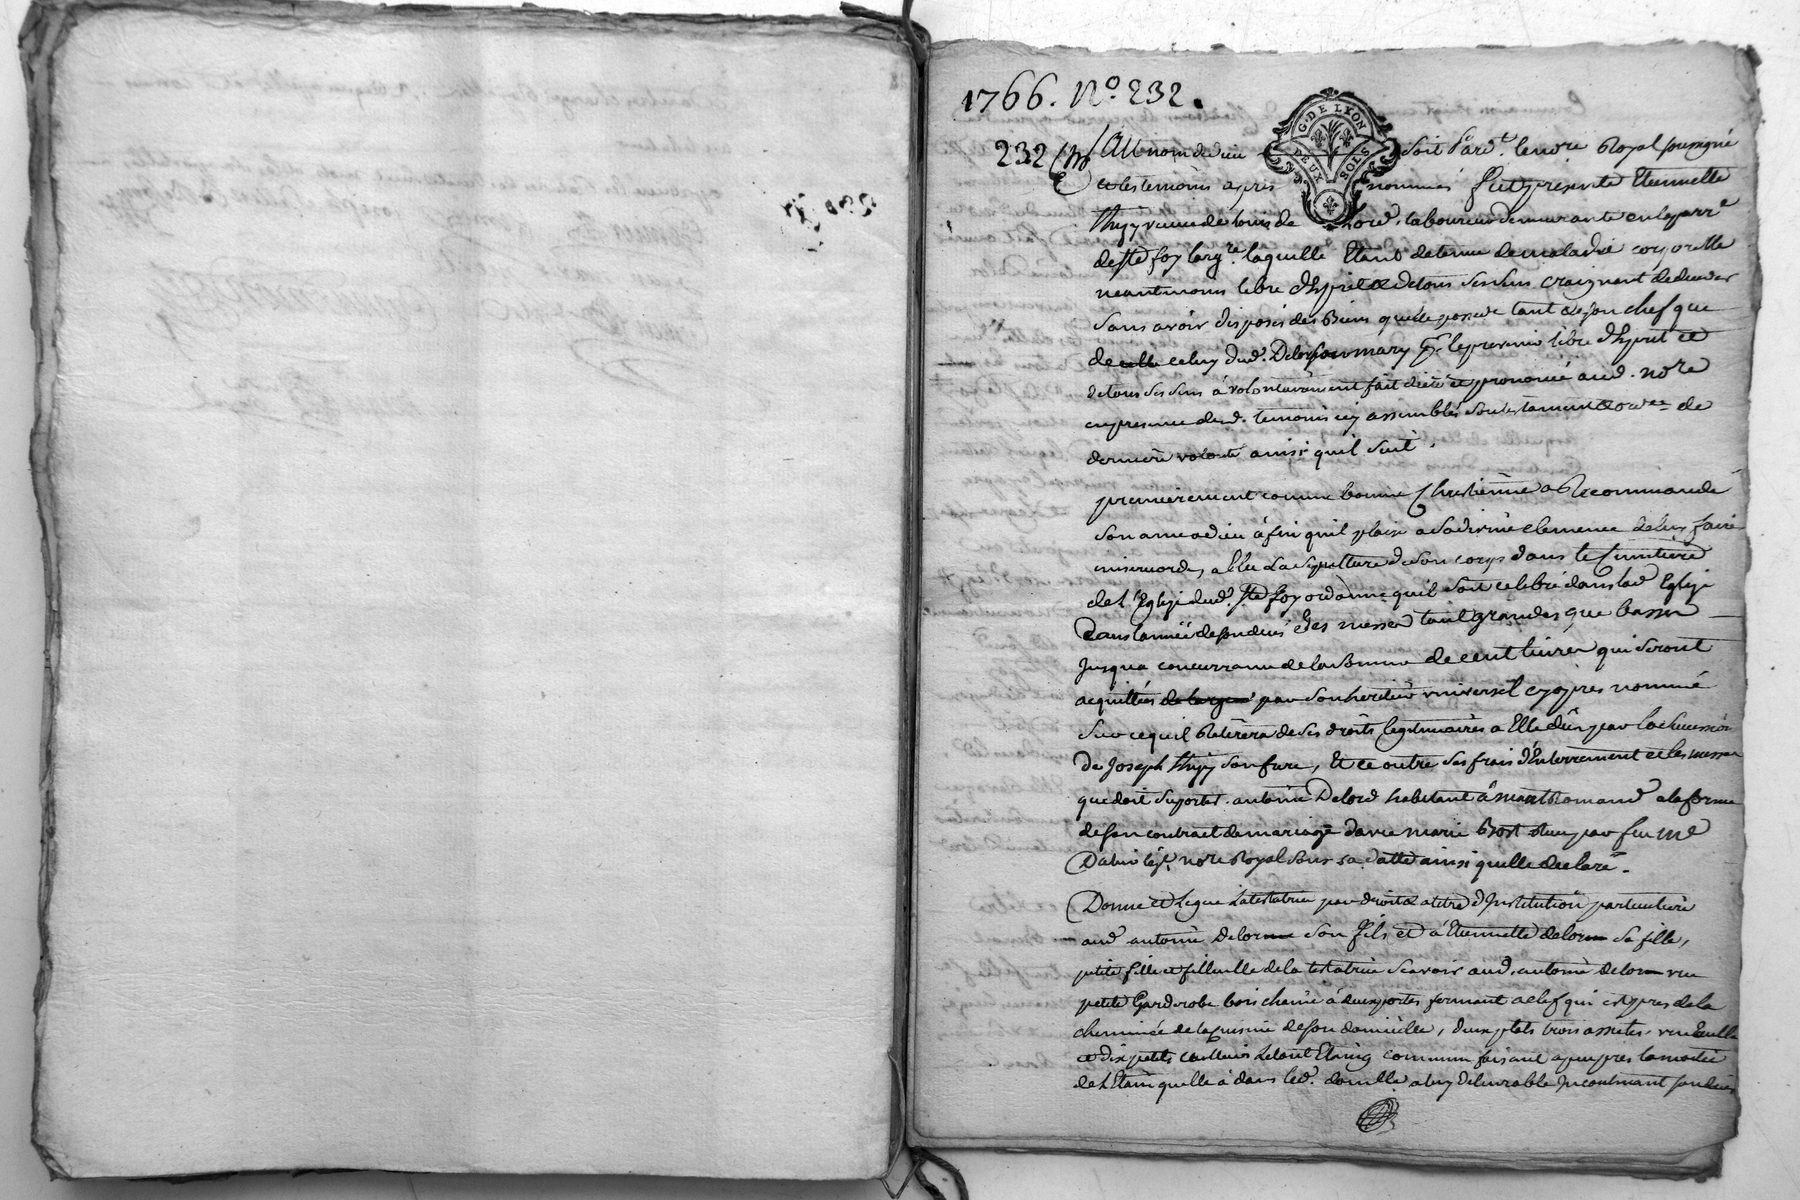 1766. N.º 232.
G. DE LYON
DEUX SOLS
232
Au nom de dieu soit Pard.t le no.re Royal soussigné
et les temoins apres nommés fut presente Etiennette
Thizy veuve de Louis de lord, laboureur demeurante en la parr.e
de ste foy l'arg.re laquelle Etant detenue de maladie corporelle
neantmoins libre d'Esprit et de tous ses sens craignant de deceder
sans avoir disposés des Biens quelle possede tant de son chef que
de celle celuy dud. Delorme son mary libre d'Esprit et
de tous ses sens à volontairement fait dicté et prononcé aud. no.re
en presence desd. temoins icy assemblés son testament et ord.ce de
derniere volonté ainsi quil suit.
premierement comme bonne Chrestienne a Recommandé
son ame a dieu à fin quil plaise a sa divine clemence de luy faire
misericorde, a Elu La sepulture de son corps dans le Cimetiere
de L'Eglize dud. Ste foy ordonne quil soit celebré dans lad. Eglize
Dans l'année de son decés des messes tant grandes que basses
Jusqua concurrance de la somme de cent livres qui seront
acquittées par son heritier universel cy apres nommé
sur ce quil Retirera de ses droits legitimaires a Elle dûs par la succession
De Joseph Thizy son frere, Et ce outre ses frais d'Enterrement et les messes
que doit suporter antoine Delord habitant à mont Romand a la forme
de son contract de mariage d'avec marie Brost Receu par feu M.e
no.re Royal sous sa datte ainsi quelle declare.
Donne et Legue La testatrice par droit et a titre d'Institution particuliere
aud. antoine Delorme son fils et à Etiennette delorme sa fille,
petite fille et filleulle de la testatrice scavoir aud. antoine delorme une
petite Garderobe bois chaine à deux portes fermant a clef qui est pres de la
cheminée de la cuisine de son domicille, deux plats trois assiettes, une Ecuelle
et dix petits cuilliers Le tout Etaing commun faisant apeupres la moitié
de L'Etain quelle à dans led. domille a luy delivrable Incontinant son decés